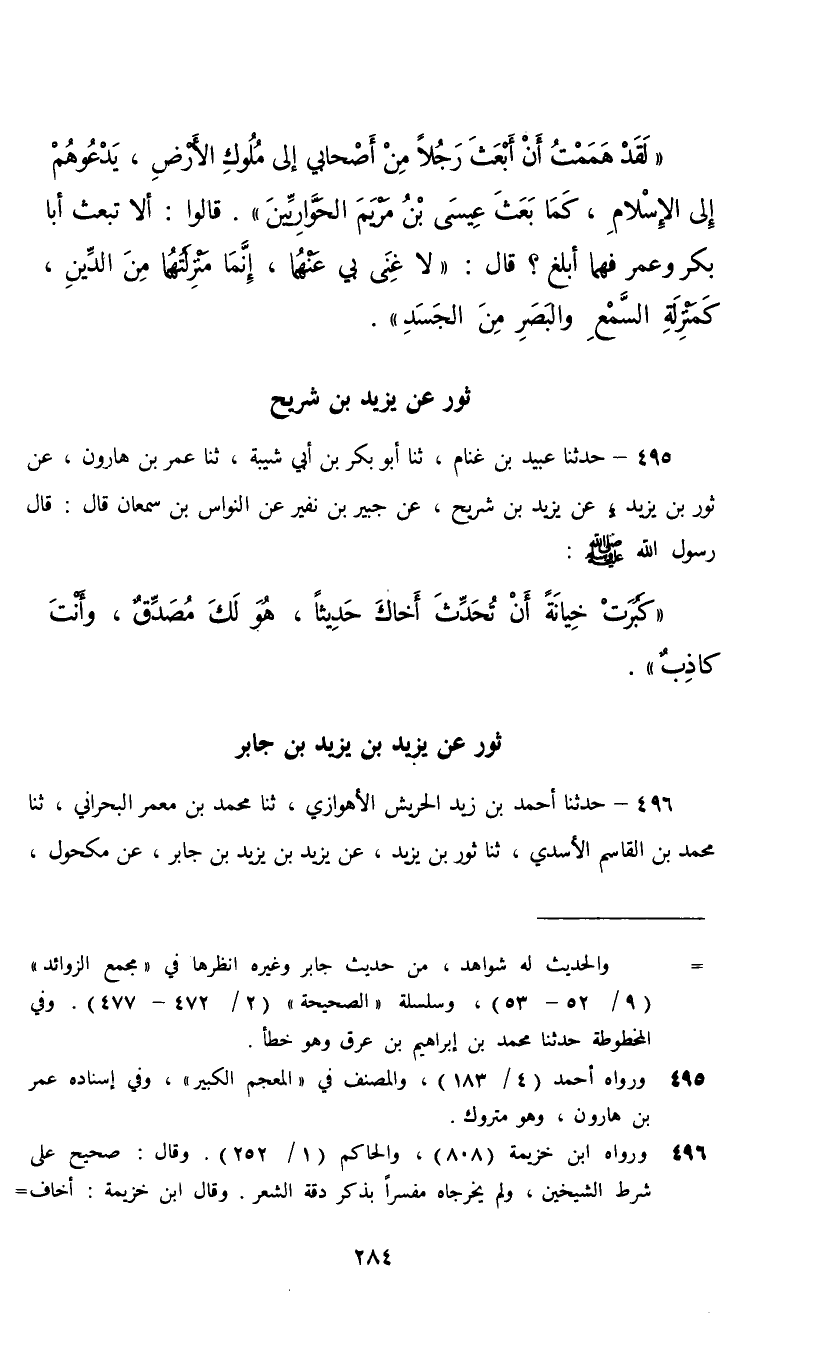 « لَقَدْ هَمَمْتُ أَنْ أَبْعَثَ رَجُلاً مِنْ أَصْحابي إلى مُلُوكِ الأَرْضِ ، يَدْعُوهُمْ
إلى الإِسْلامِ ، كَمَا بَعَثَ عِيسَى بْنُ مَرْيَمَ الحَوَّارِيِّينَ» . قالوا : ألا تبعث أبا
بكر وعمر فهما أبلغ ؟ قال : «لا غِنَى بي عَنْهُما ، إنَّمَا مَنْزِلَتُهُما مِنَ الدِّينِ ،
كَمَنْزِلَةِ السَّمْعِ والبَصَرِ مِنَ الجَسَدِ» .
ثور عن يزيد بن شريح
٤٩٥ – حدثنا عبيد بن غنام ، ثنا أبو بكر بن أبي شيبة ، ثنا عمر بن هارون ، عن
ثور بن يزيد ، عن يزيد بن شريح ، عن جبير بن نفير عن النواس بن سمعان قال : قال
رسول الله ﷺ :
«كَبُرَتْ خِيانَةً أَنْ تُحَدِّثَ أَخاكَ حَدِيثاً ، هُوَ لَكَ مُصَدِّقٌ ، وأَنْتَ
كاذِبٌ» .
ثور عن يزيد بن يزيد بن جابر
٤٩٦ – حدثنا أحمد بن زيد الحريش الأهوازي ، ثنا محمد بن معمر البحراني ، ثنا
محمد بن القاسم الأسدي ، ثنا ثور بن يزيد ، عن يزيد بن يزيد بن جابر ، عن مكحول ،
= والحديث له شواهد ، من حديث جابر وغيره انظرها في «مجمع الزوائد»
(٩/ ٥٢ – ٥٣) ، وسلسلة «الصحيحة» (٢/ ٤٧٢ – ٤٧٧) . وفي
المخطوطة حدثنا محمد بن إبراهيم بن عرق وهو خطأ .
٤٩٥ ورواه أحمد (٤/ ١٨٣) ، والمصنف في «المعجم الكبير» ، وفي إسناده عمر
بن هارون ، وهو متروك .
٤٩٦ ورواه ابن خزيمة (٨٠٨) ، والحاكم (١/ ٢٥٢) . وقال : صحيح على
شرط الشيخين ، ولم يخرجاه مفسراً بذكر دقة الشعر . وقال ابن خزيمة : أخاف=
٢٨٤